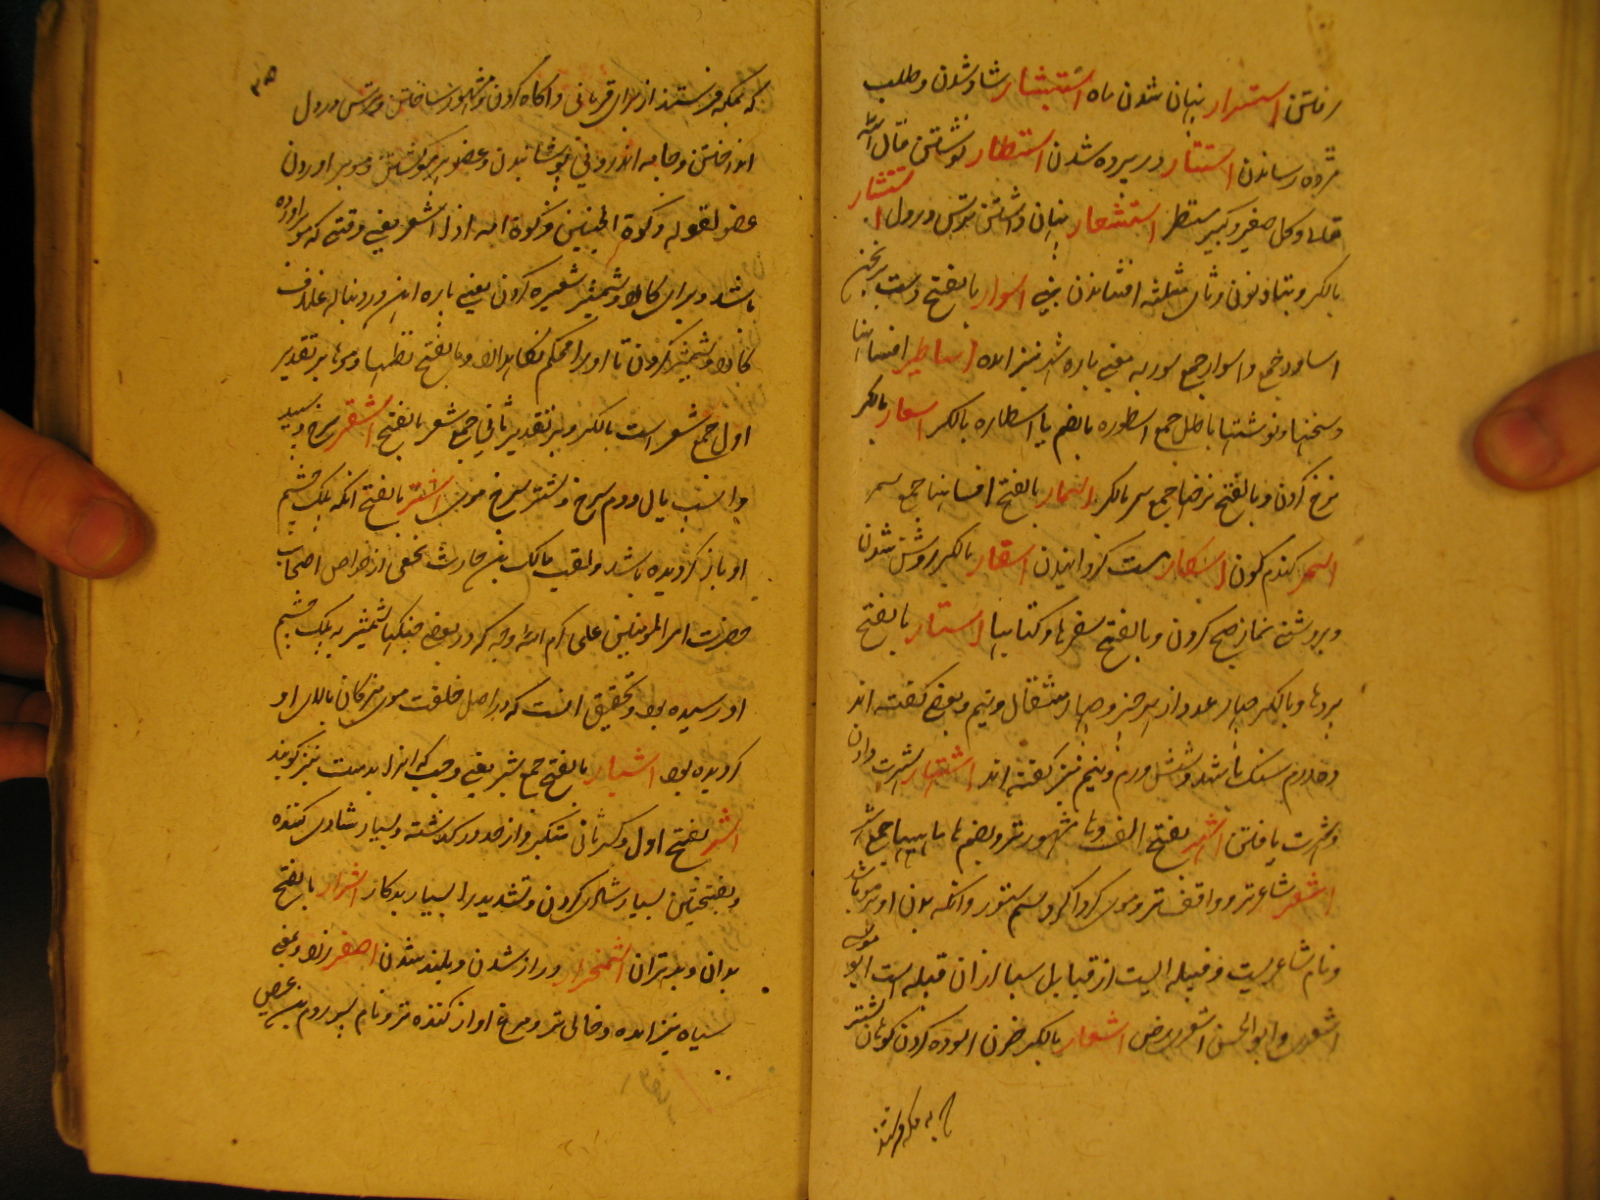 رفتن استسرار پنهان شدن ماه استبشار شاد شدن و طلب
مژده رسانیدن استتار در پرده شدن استطار نوشتن قال الله
تعالی و کل صغیر و کبیر مستطر استشعار پنهان داشتن ترس در دل استنثار
بالکسر و بتا و نون و ثای مثلثه افشاندن بینی اسوار بالفتح دست برنجن
اساور جمع و اسوار جمع سور به معنی باره شهر نیز امده اساطیر افسانها
و سخنها و نوشتهای باطل جمع اسطوره بالضم یا اسطاره بالکسر اسعار بالکسر
نرخ کردن و بالفتح نرخها جمع سعر بالکسر اسمار بالفتح افسانها جمع سمر
اسمر گندم گون اسکار مست گردانیدن اسفار بالکسر روشن شدن
و بروشنی نماز صبح کردن و بالفتح سفرها و کتابها استار بالفتح
پردها و بالکسر چهار عدد از هر چیز و چهار مثقال و نیم و بعضی گفته اند
درم سنگ باشد و شش درم و نیم نیز گفته اند اشتهار شهرت دادن
و شهرت یافتن اشهر بفتح الف و ها مشهورتر و بضم ها ماهها جمع شهر
اشعر شاعرتر و واقف تر و موی گرداگرد سم ستور و انکه بدن او پر مو باشد
و نام شاعریست و قبیله ایست از قبایل سبا از ان قبیله است ابو موسی
اشعری و ابو الحسن اشعری اشعار بالکسر خون الوده کردن کوهان شتر
که بمکه فرستند از برای قربانی و اگاه کردن و مشهور ساختن و ترس در دل
انداختن و جامه اندرونی پوشانیدن و عضو پر مو گشتن و مو بر اوردن
عضو لقوله ذکوة الجنین ذکوة امه اذا اشعر یعنی وقتی که مو بر اورده
باشد و برای کارد و شمشیر شعیره کردن یعنی پاره اهن در دنباله غلاف
کارد و شمشیر کردن تا او را محکم نگاهدارد و بالفتح نظمها و مویها بر تقدیر
اول جمع شعر است بالکسر و بر تقدیر ثانی جمع شعر بالفتح اشقر سرخ و سپید
و اسب یال و دم سرخ و شتر سرخ موی اشتر بالفتح انکه پلک چشم
او باز گردیده باشد و لقب مالک بن حارث نخعی از خواص اصحاب
حضرت امیر المومنین علی کرم الله وجهه که در بعضی جنگها شمشیر به پلک چشم
او رسیده بود و تحقیق انست که در اصل خلقت موی مژگان بالای او
گردیده بود اشبار بالفتح جمع شبر یعنی وجب که انرا بدست نیز گویند
اشر بفتح اول و کسر ثانی متکبر و از حد در گذشته و بسیار شادی کننده
و بفتحتین بسیار شادی کردن و بتشدید را بسیار بدکار اشرار بالفتح
بدان و بدتران اشمخرار دراز شدن و بلند شدن اصفر زرد و بمعنی
سیاه نیز امده و خالی تر و مرغ اواز کننده تر و نام پسر روم بن عیص